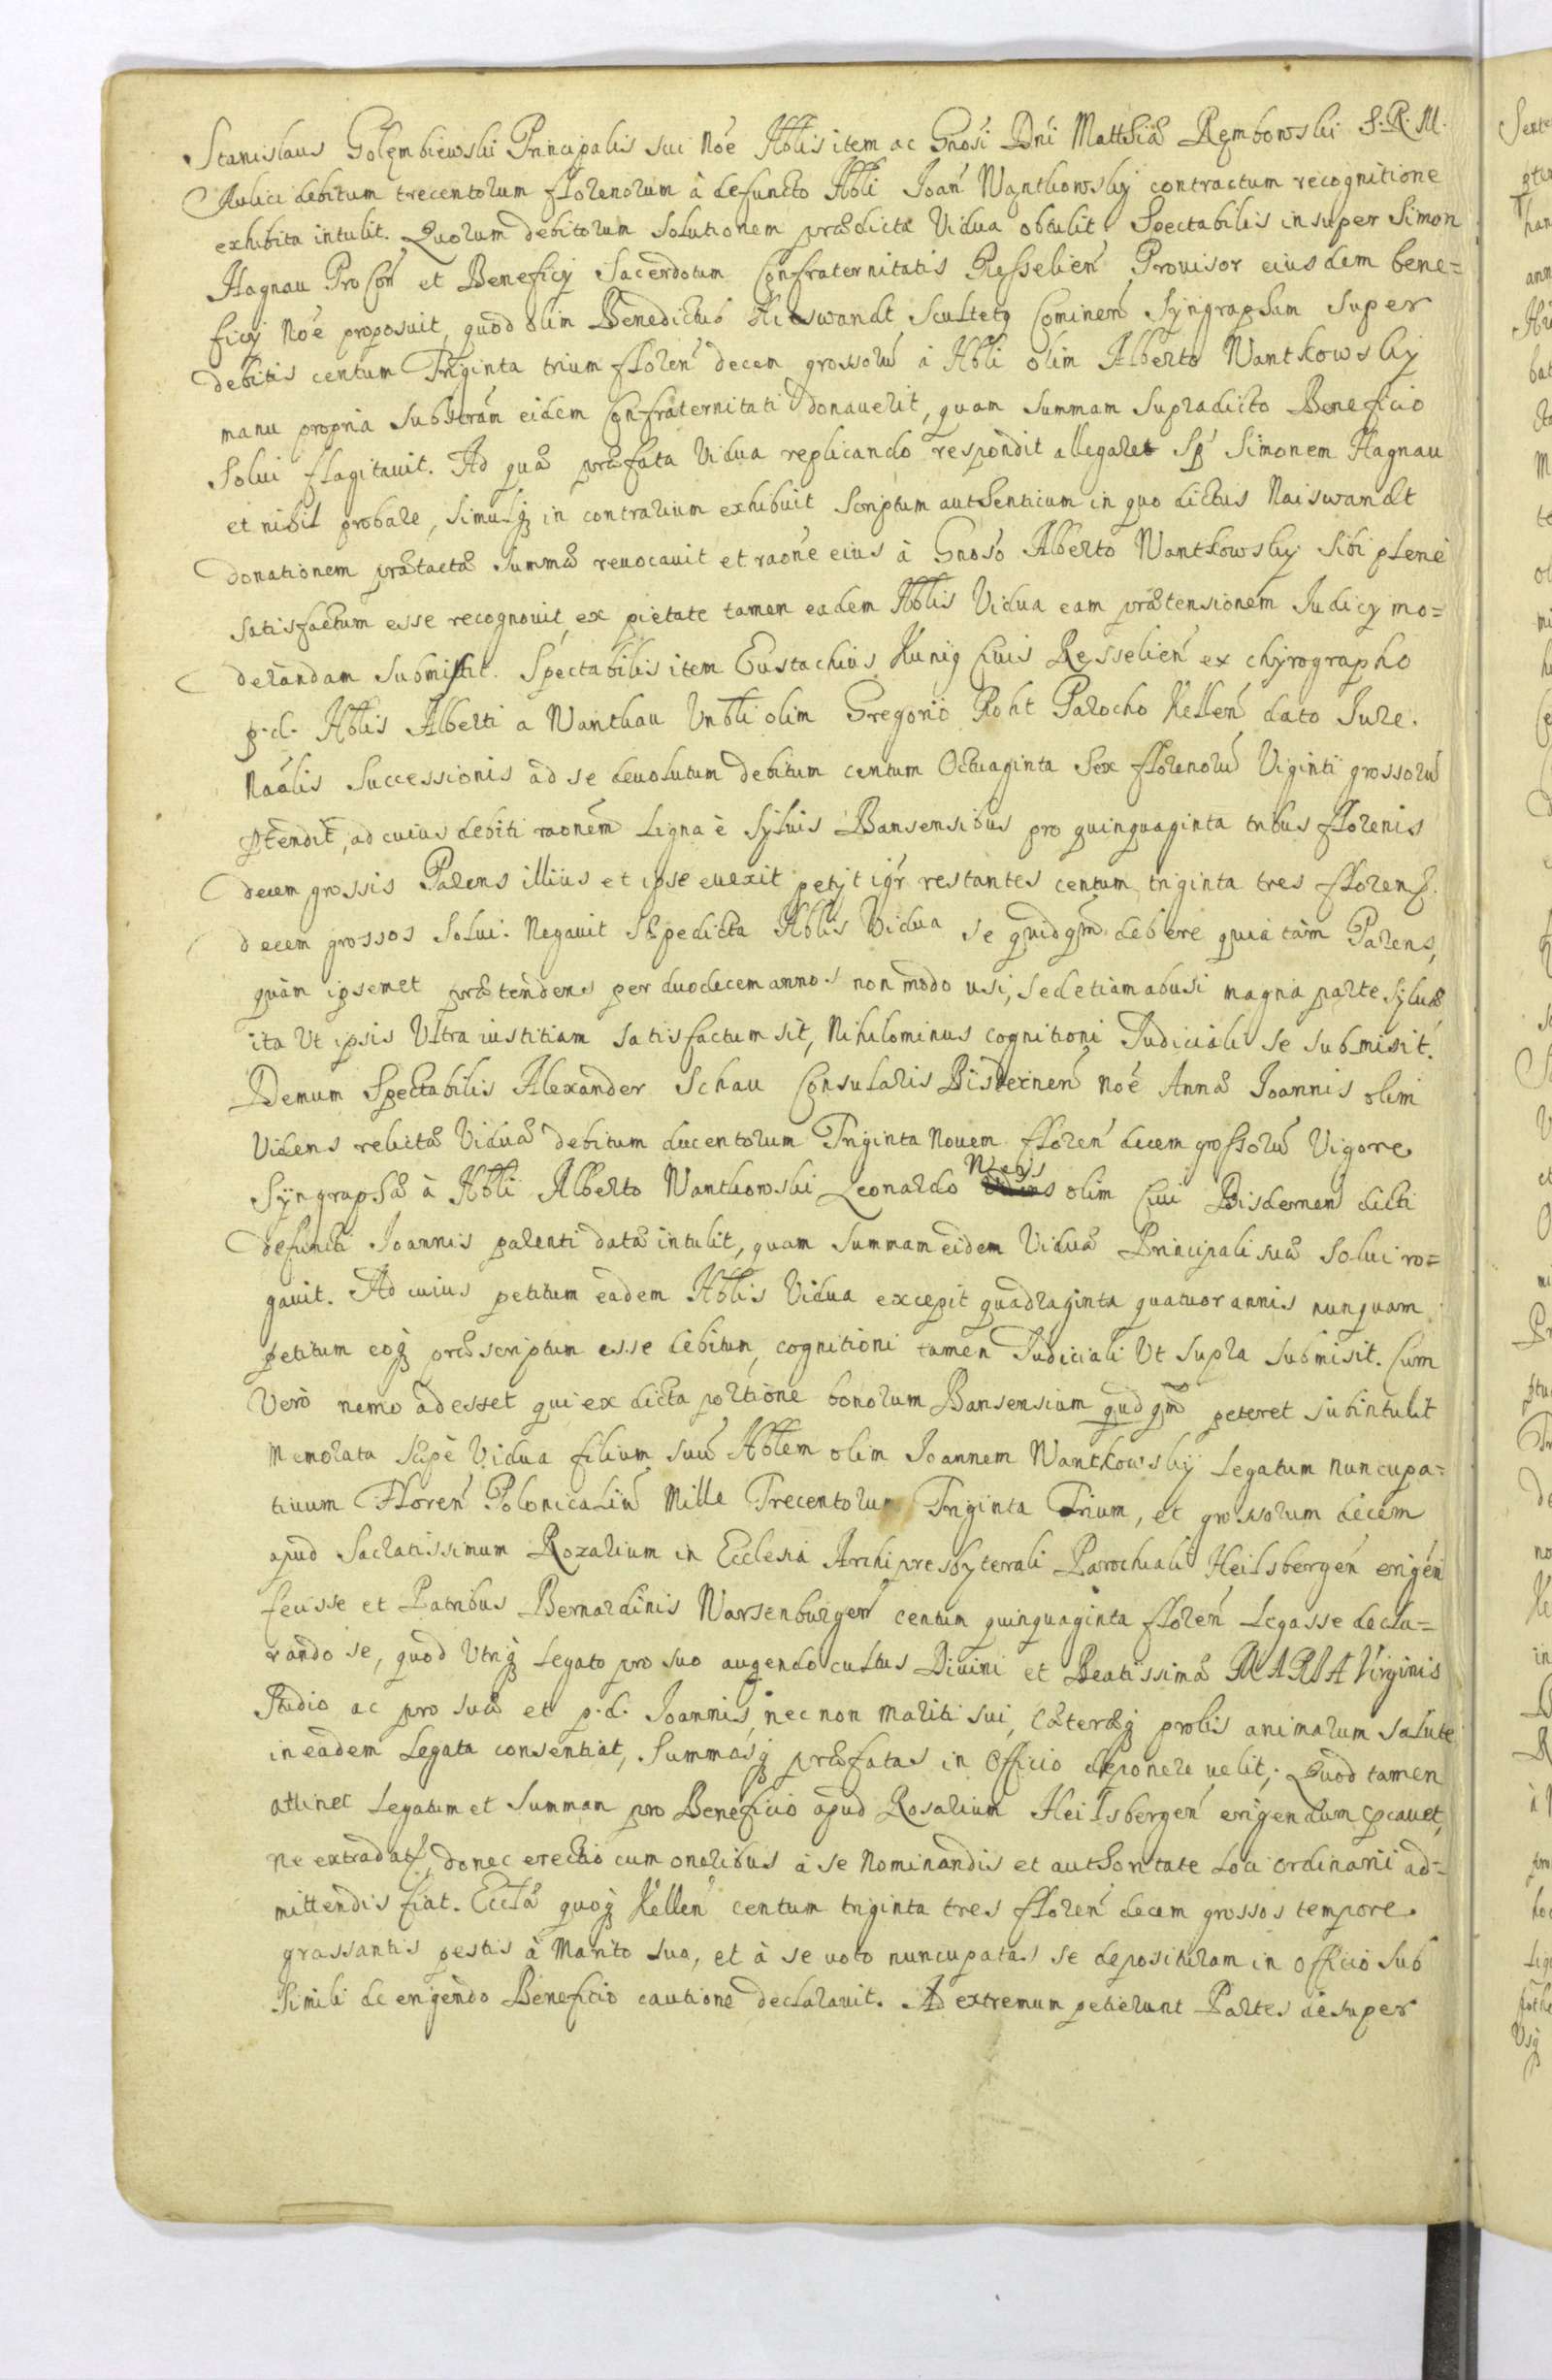 Stanislaus Golembiewski Principalis sui noe Nblis item ac Gnosi Dni Matthiæ Rembowski S. R. M.
Aulici debitum trecentorum fflorenorum à defuncto Nbli Joan Wantkowsky contractum recognitione
exhibita intulit. Quorum debitorum solutionem prædicta Vidua obtulit Spectabilis insuper Simon
Hagnau ProCon et Beneficij Sacerdotum Confraternitatis Resselien Prouisor eiusdem bene=
ficij noe proposuit, quod olim Benedictus Naiswandt Scultetg Cominen Syngrapham super
debitis centum Triginta trium ffloren decem grossorũ à Nbli olim Alberto Wantkowsky
manu propria substram eidem Confraternitati donauerit, quam summam supradicto Beneficio
solui flagitauit. Ad quæ præfata Vidua replicando respondit allegare Sp Simonem Hagnau
et nihil probare, simulq in contrarium exhibuit Scriptum authenticum in quo dictus Naiswandt
donationem prætactæ summæ reuocauit et raone eius à Gnoso Alberto Wantkowsky sibi plenè
satisfactum esse recognouit, ex pietate tamen eadem Nblis Vidua eam prætensionem Judicij mo=
derandam submisit. Spectabilis item Eustachius Kunig Ciuis Resselien ex chyrographo
p. d. Nblis Alberti a Wantkau Vnbli olim Gregorio Roht Parocho Kellen dato Jure.
Naalis Successionis ad se deuolutum debitum centum Octuaginta Sex fflorenorũ Viginti grossorũ
ptendit, ad cuius debiti raonem Ligna è Syluis Bansensibus pro quinquaginta tribus fflorenis
decem grossis Parens illius et ipse euexit petijt igr restantes centum triginta tres fflorenos
decem grossos solui. Negauit Sæpedicta Nblis Vidua se quidqm debere quia tàm Parens,
quàm ipsemet prætendens per duodecem annos non modo usi, sed etiam abusi magna parte syluæ
ita Vt ipsis Vltra iustitiam satisfactum sit, Nihilominus cognitioni Judiciali se submisit.
Demum Spectabilis Alexander Schau Consularis Bisternen noe Annæ Joannis olim
Videns relictæ Viduæ debitum ducentorum Triginta Nouem ffloren decem grossorũ Vigore
Syngraphæ à Nbli Alberto Wantkowski Leonardo olim Ciui Bisternen dicti
defuncti Joannis parenti datæ intulit, quam summam eidem Viduæ Principali suæ solui ro=
gauit. Ad cuius petitum eadem Nblis Vidua excepit quadraginta quatuor annis nunquam
petitum eoq præscriptum esse debitum, cognitioni tamen Judiciali Vt supra submisit. Cum
Verò nemo adesset qui ex dicta portione bonorum Bansensium quidqm peteret subintulit
Memorata sæpè Vidua filium suũ Nblem olim Joannem Wantkowsky Legatum nuncupa=
tiuum Floren Polonicaliũ Mille Trecentorum Triginta Trium, et grossorum decem
apud Sacratissimum Rozarium in Ecclesia Archipresbyterali Parochiali Heilsbergen erigen
fecisse et Patribus Bernardinis Warsenburgen centum quinquaginta ffloren Legasse decla=
rando se, quod Vtriq Legato pro suo augendo cultus Diuini et Beatissimæ MARIÆ Virginis
Studio ac pro suæ et p. d. Joannis, nec non mariti sui, Cæteræq prolis animarum salute
in eadem Legata consentiat, summasq præfatas in Officio deponere uelit; Quod tamen
attinet Legatum et Summam pro Beneficio apud Rosarium Heilsbergen erigendum pcauet,
ne extradatr, donec erectio cum oneribus à se nominandis et authoritate Loci ordinarii ad=
mittendis fiat. Ecclæ quoq Kellen centum triginta tres ffloren decem grossos tempore
grassantis pestis à Marito suo, et à se uoto nuncupatas se deposituram in officio sub
simili de erigendo Beneficio cautione declarauit. Ad extremum petierunt Partes desuper